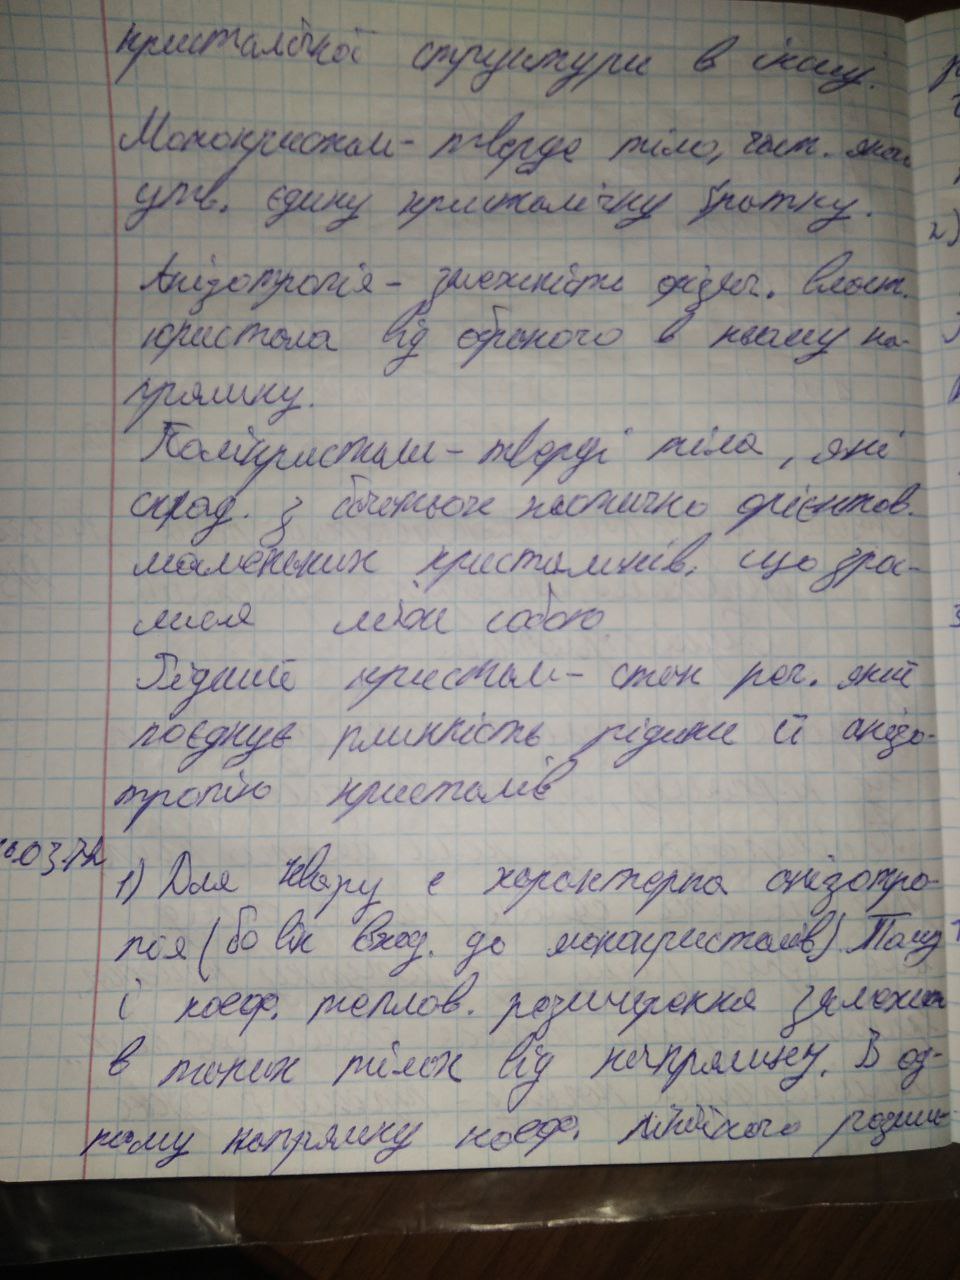 кристалічної структури в іншу.
Монокристали - тверде тіло, част. якого
утв. єдину кристалічну гратку.
Анізотропія - залежність фізич. власт.
кристала від обраного в ньому на-
прямку.
Полікристали - тверді тіла, які
склад. з багатьох хаотично орієнтов.
маленьких кристаликів, що зрос-
лися між собою
Рідкий кристал - стан реч. який
поєднує плинність рідини й анізо-
тропію кристалів
1) Для кварцу є характерна анізотро-
пія (бо він вход. до монокристалів). Тому
і коеф. теплов. розширення залежить
в таких тілах від напрямку. В од-
ному напрямку коеф. лінійного розши-
2)